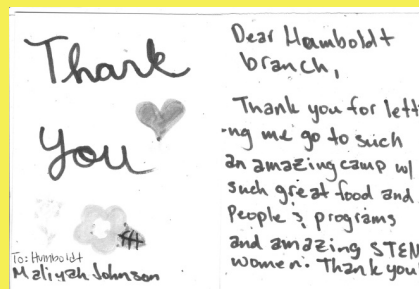 Thank
you
To: Humboldt
Maliyah Johnson
Dear Humboldt
branch,
Thank you for letti
-ng me go to such
an amazing camp w/
such great food and
People & programs
and amazing STEM
women. Thank you